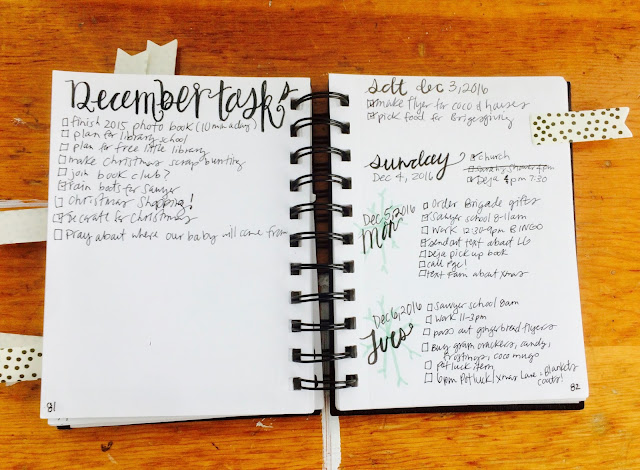 December tasks
finish 2015 photo book (10 min a day)
plan for library school
plan for free little library
make Christmas scrap bunting
join book club?
rain boots for Sawyer
Christmas Shopping!
decorate for Christmas
pray about where our baby will come from
81
sat dec 3, 2016
make flyer for coco & houses
pick food for Brigesgiving
sunday
Dec 4, 2016
church
Shower 4pm
Deja 4pm 7:30
Dec 5, 2016
Mon
Order Brigade gifts
Sawyer school 8-11am
Work 12:30-9pm BINGO
send out text about LG
Deja pick up book
call
text fam about xmas
Dec 6, 2016
Tues
Sawyer school 8am
Work 11-3pm
pass out gingerbread flyers
Buy gram crackers, candy,
frostings, coco mugs
potluck item
6pm Potluck/Xmas Lane, Blankets
coats!
82